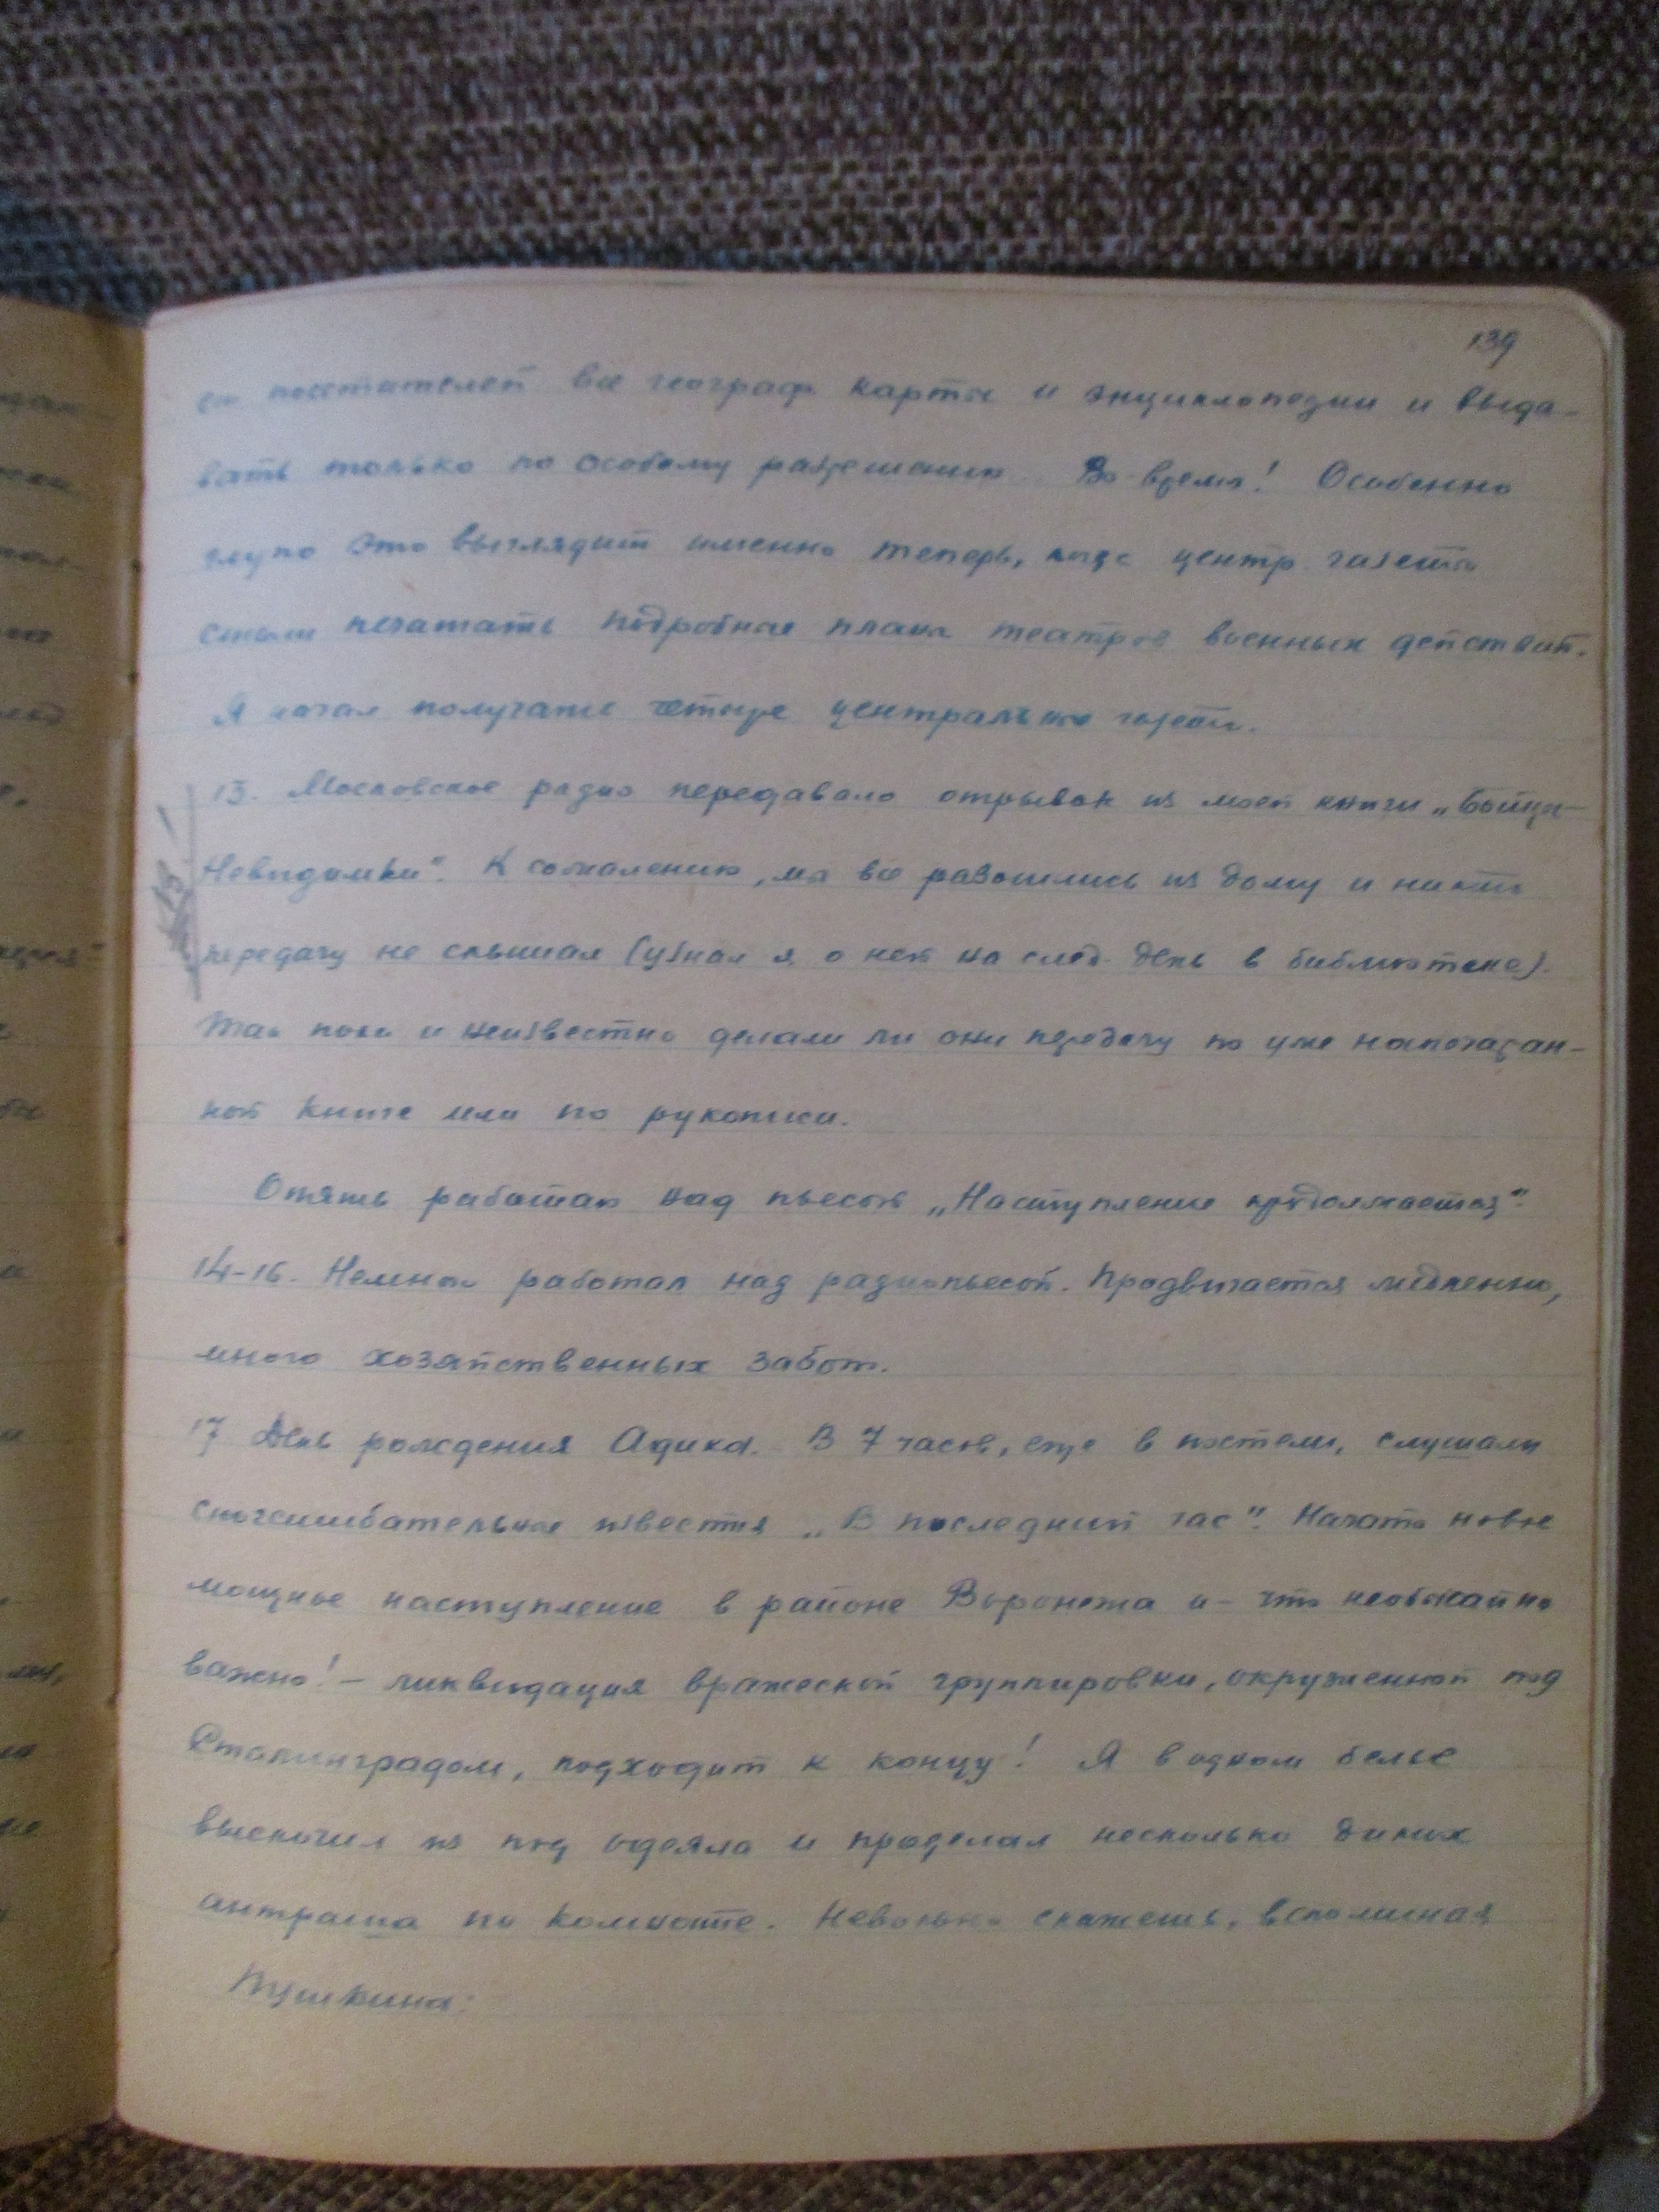 139
от посетителей все географ. карты и энциклопедии и выда-
вать только по особому разрешению. Во-время! Особенно
глупо это выглядит именно теперь, когда центр. газеты
стали печатать подробные планы театров военных действий.
Я начал получать четыре центральные газеты.
13. Московское радио передавало отрывок из моей книги „Бойцы-
Невидимки". К сожалению, мы все разошлись из дому и никто
передачу не слышал (узнал я о ней на след. день в библиотеке).
Так пока и неизвестно делали ли они передачу по уже напечатан-
ной книге или по рукописи.
Опять работаю над пьесой „Наступление продолжается".
14-16. Немного работал над радиопьесой. Продвигается медленно,
много хозяйственных забот.
17 День рождения Адика. В 7 часов, еще в постели, слушали
сногсшибательные известия „В последний час". Начато новое
мощное наступление в районе Воронежа и - что необычайно
важно! - ликвидация вражеской группировки, окруженной под
Сталинградом, подходит к концу! Я в одном белье
выскочил из под одеяла и проделал несколько диких
антраша по комнате. Невольно скажешь, вспоминая
Пушкина: